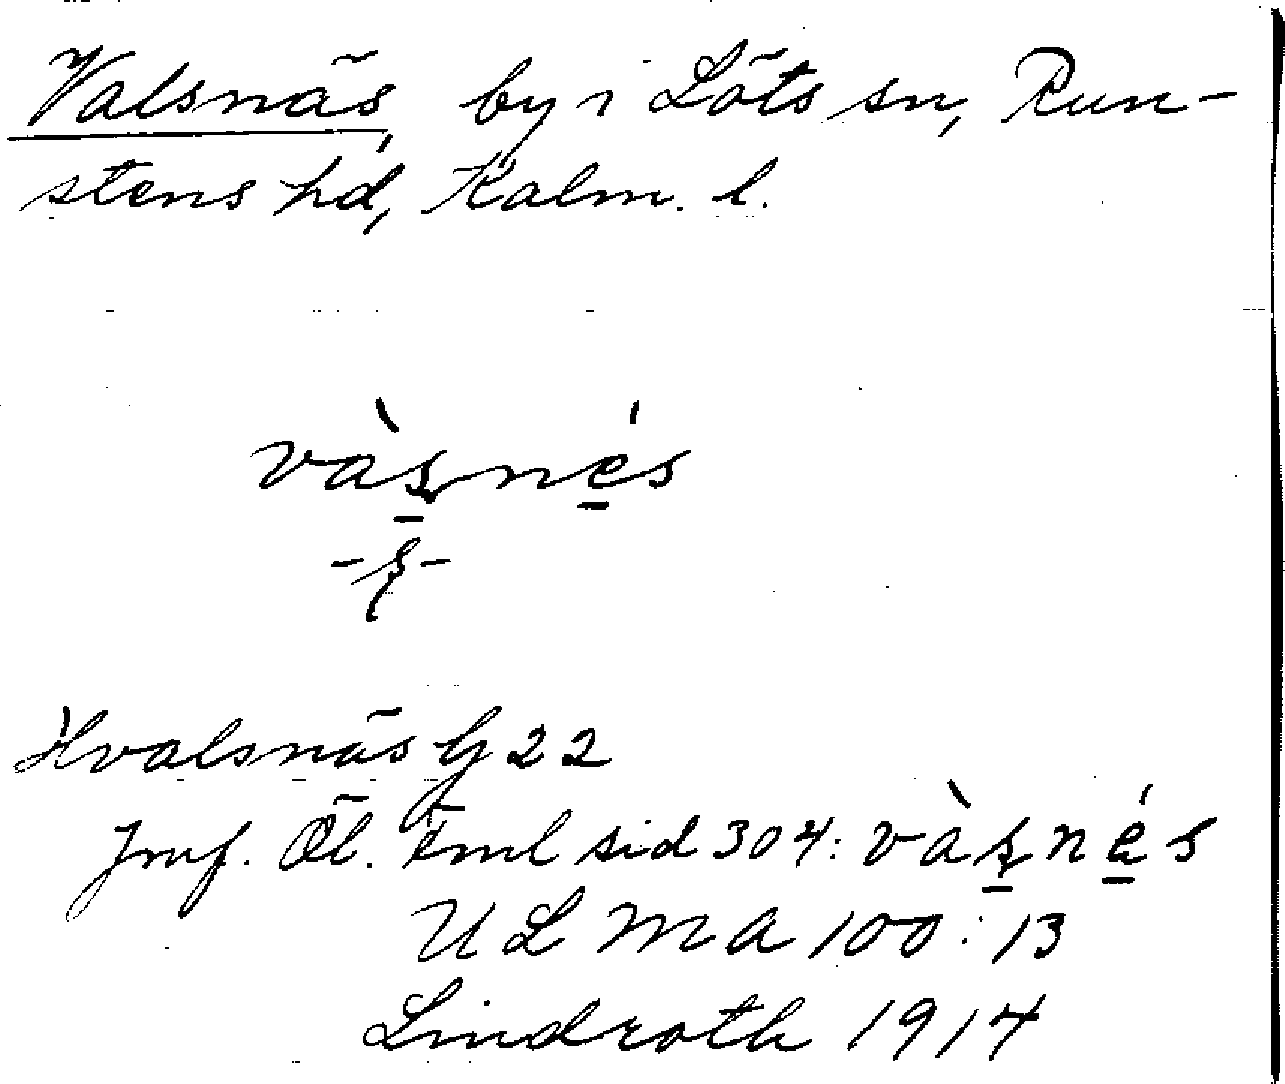 Valsnäs, by i Löts sn, Run-
stens hd, Kalm. l.
vàs̱nés
-ʂ-
Hvalsnäs G 22
Jmf. Öl. Fml sid 304: vàs̱nés
ULMA 100:13
Lindroth 1914